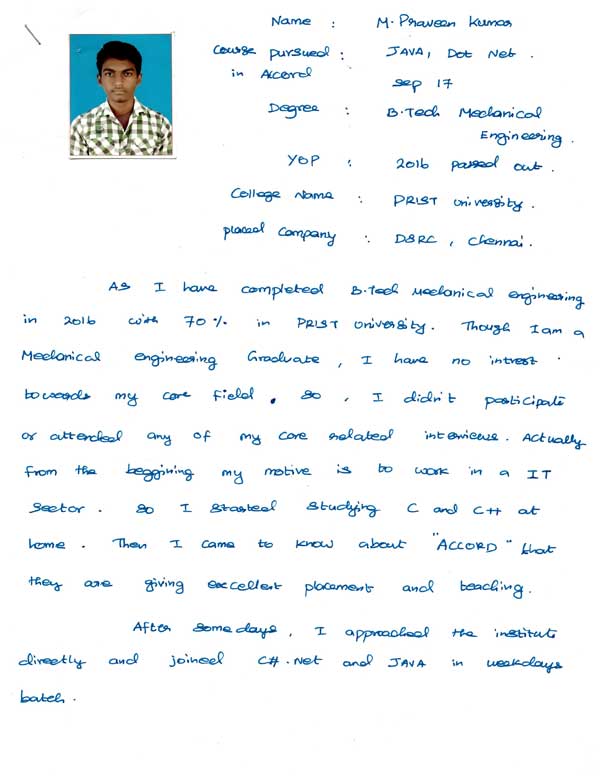 Name : M. Praveen Kumar
Course pursued : JAVA, Dot Net.
in Accord Sep 17
Degree : B.Tech Mechanical
Engineering.
YOP : 2016 passed out.
College Name : PRIST University.
placed Company : DSRC, Chennai.
As I have completed B.Tech Mechanical engineering
in 2016 with 70% in PRIST University. Though I am a
Mechanical engineering Graduate, I have no intrest
towards my core field. So, I didn't participate
or attended any of my core related interviews. Actually
from the beggining my motive is to work in a IT
Sector. So I started studying C and C++ at
home. Then I came to know about "ACCORD" that
they are giving excellent placement and teaching.
After some days, I approached the institute
directly and joined C#.Net and JAVA in weekdays
batch.